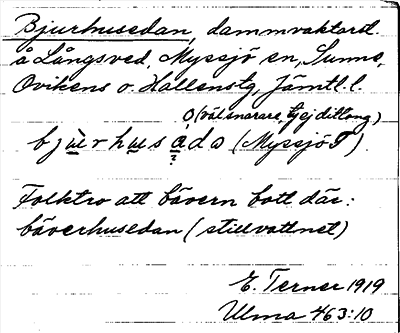 Bjurhusedan, dammvaktarst.
å Långsved, Myssjö sn, Sunne,
Ovikens o. Hallens tg, Jämtl. l.
o (väl snarare, ty ej diftong)
bjùrhusàdo (Myssjö T).
?
Folktro att bävern bott där:
bäverhusedan (stillvattnet)
E. Terner 1919
Ulma 463:10